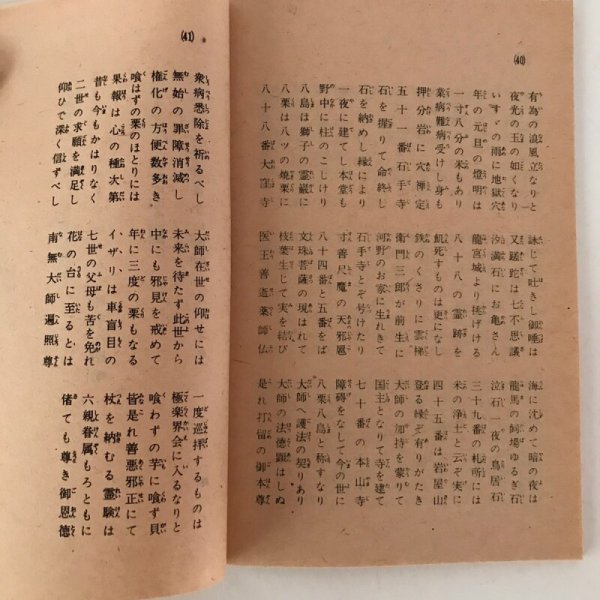 (40)
有為の浪風立なりと 詠じて吐きし御唾は 海に沈めて暗の夜は
夜光の玉の如くなり 又蹉跎は七不思議 龍馬の飼場ゆるぎ石
いすゞの雨に地獄穴 汐満石にお亀さん 泣石一夜の鳥居石
年の元旦の燈明は 龍宮城より捧げける 三十九番の札所には
一寸八分の米もあり 八十八の霊跡を 米の浄土と云ぞ実に
衆病難病受けし身も 餓死すものは更になし 四十五番は岩屋山
押分岩に穴禅定 鉄のくさりに雲梯 登る縁ぞ有りがたき
五十一番石手寺 衛門三郎が前生に 大師の加持を蒙りて
石を握りて命終し 河野のお家に生れきて 国主となりて寺を建て
石を納めし縁により 石手寺とぞ号けたり 七十番の本山寺
一夜に建てし本堂も 寸善尺魔の天邪鬼 障碍をなして今の世に
野中に柱のこしけり 八十四番と五番をば 八栗八島と称すなり
八島は獅子の霊巌に 文珠菩薩の現はれて 大師へ護法の契りあり
八栗は八ツの焼栗に 枝葉生じて実を結び 大師の法徳顕はしぬ
八十八番大窪寺 医王善逝薬師仏 是れ打留の御本尊
(41)
衆病悉除を祈るべし 大師在世の仰せには 一度巡拝するものは
無始の罪障消滅し 未来を待たず此世から 極楽界会に入るなりと
権化の方便数多き 中にも邪見を戒めて 喰わずの芋に喰ず貝
喰はずの栗のほとりには 年に三度の栗もなる 皆是れ善悪邪正にて
果報は心の種次第 イザリは車盲目の 杖を納むる霊験は
昔も今もかはりなく 七世の父母も苦を免れ 六親眷属もろともに
二世の求願を満足し 花の台に至るとは 偖ても尊き御恩徳
仰ひで深く信ずべし 南無大師遍照尊